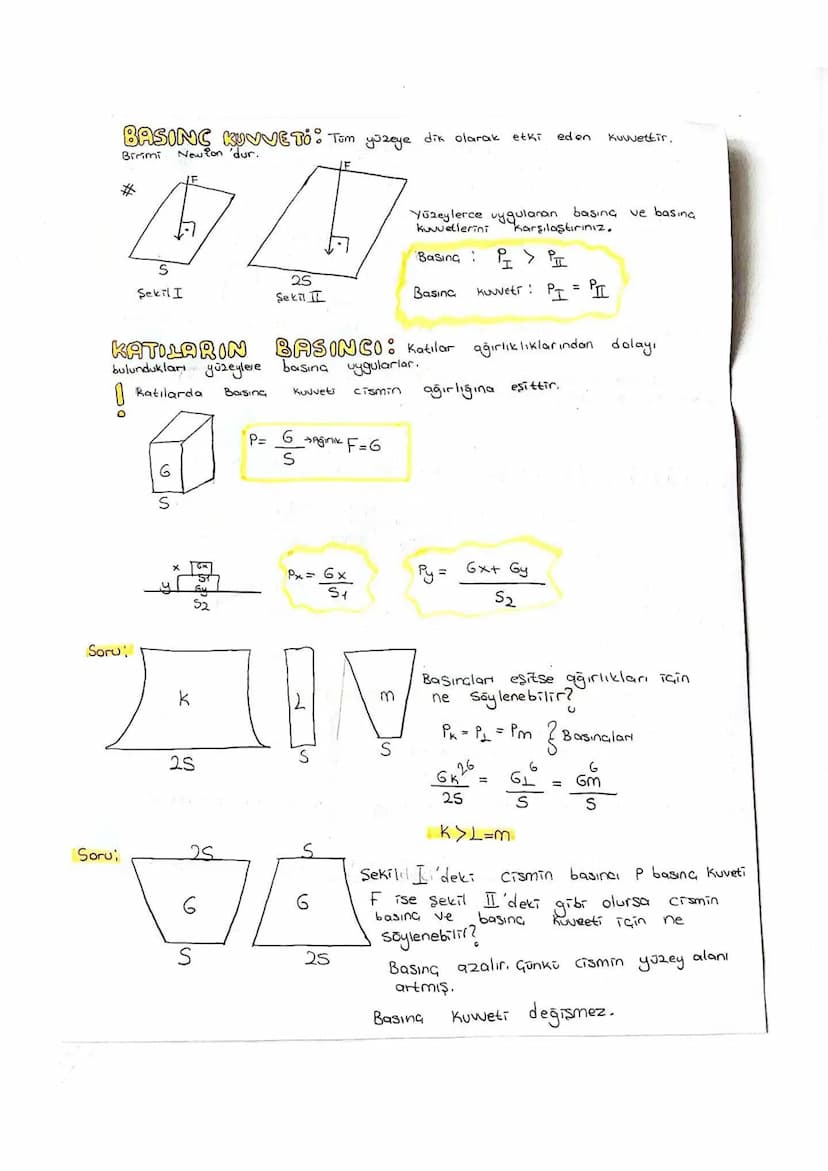 BASINÇ KUVVETİ: Tüm yüzeye dik olarak etki eden kuvvettir.
Birimi Newton'dur.
#
F
F
S
2S
Şekil I
Şekil II
Yüzeylerce uygulanan basınç ve basınç
kuvvetlerini karşılaştırınız.
Basınç : P_I > P_II
Basınç kuvveti : P_I = P_II
KATILARIN BASINCI: Katılar ağırlıklıklarından dolayı
bulundukları yüzeylere basınç uygularlar.
! Katılarda Basınç kuvveti cismin ağırlığına eşittir.
G
S
P= G/S →Ağırlık F=G
x Gx
S1
y Gy
S2
Px = Gx/S1
Py = Gx+ Gy/S2
Soru:
K
L
m
2S
S
S
Basınçları eşitse ağırlıkları için
ne söylenebilir?
PK = PL = Pm } Basınçları
GK/2S = GL/S = Gm/S
2G G G
K>L=m
Soru:
2S
S
G
G
S
2S
Şekil I'deki cismin basıncı P basınç kuveti
F ise şekil II'deki gibi olursa cismin
basınç ve basınç kuvveti için ne
söylenebilir?
Basınç azalır. Çünkü cismin yüzey alanı
artmış.
Basınç kuvveti değişmez.